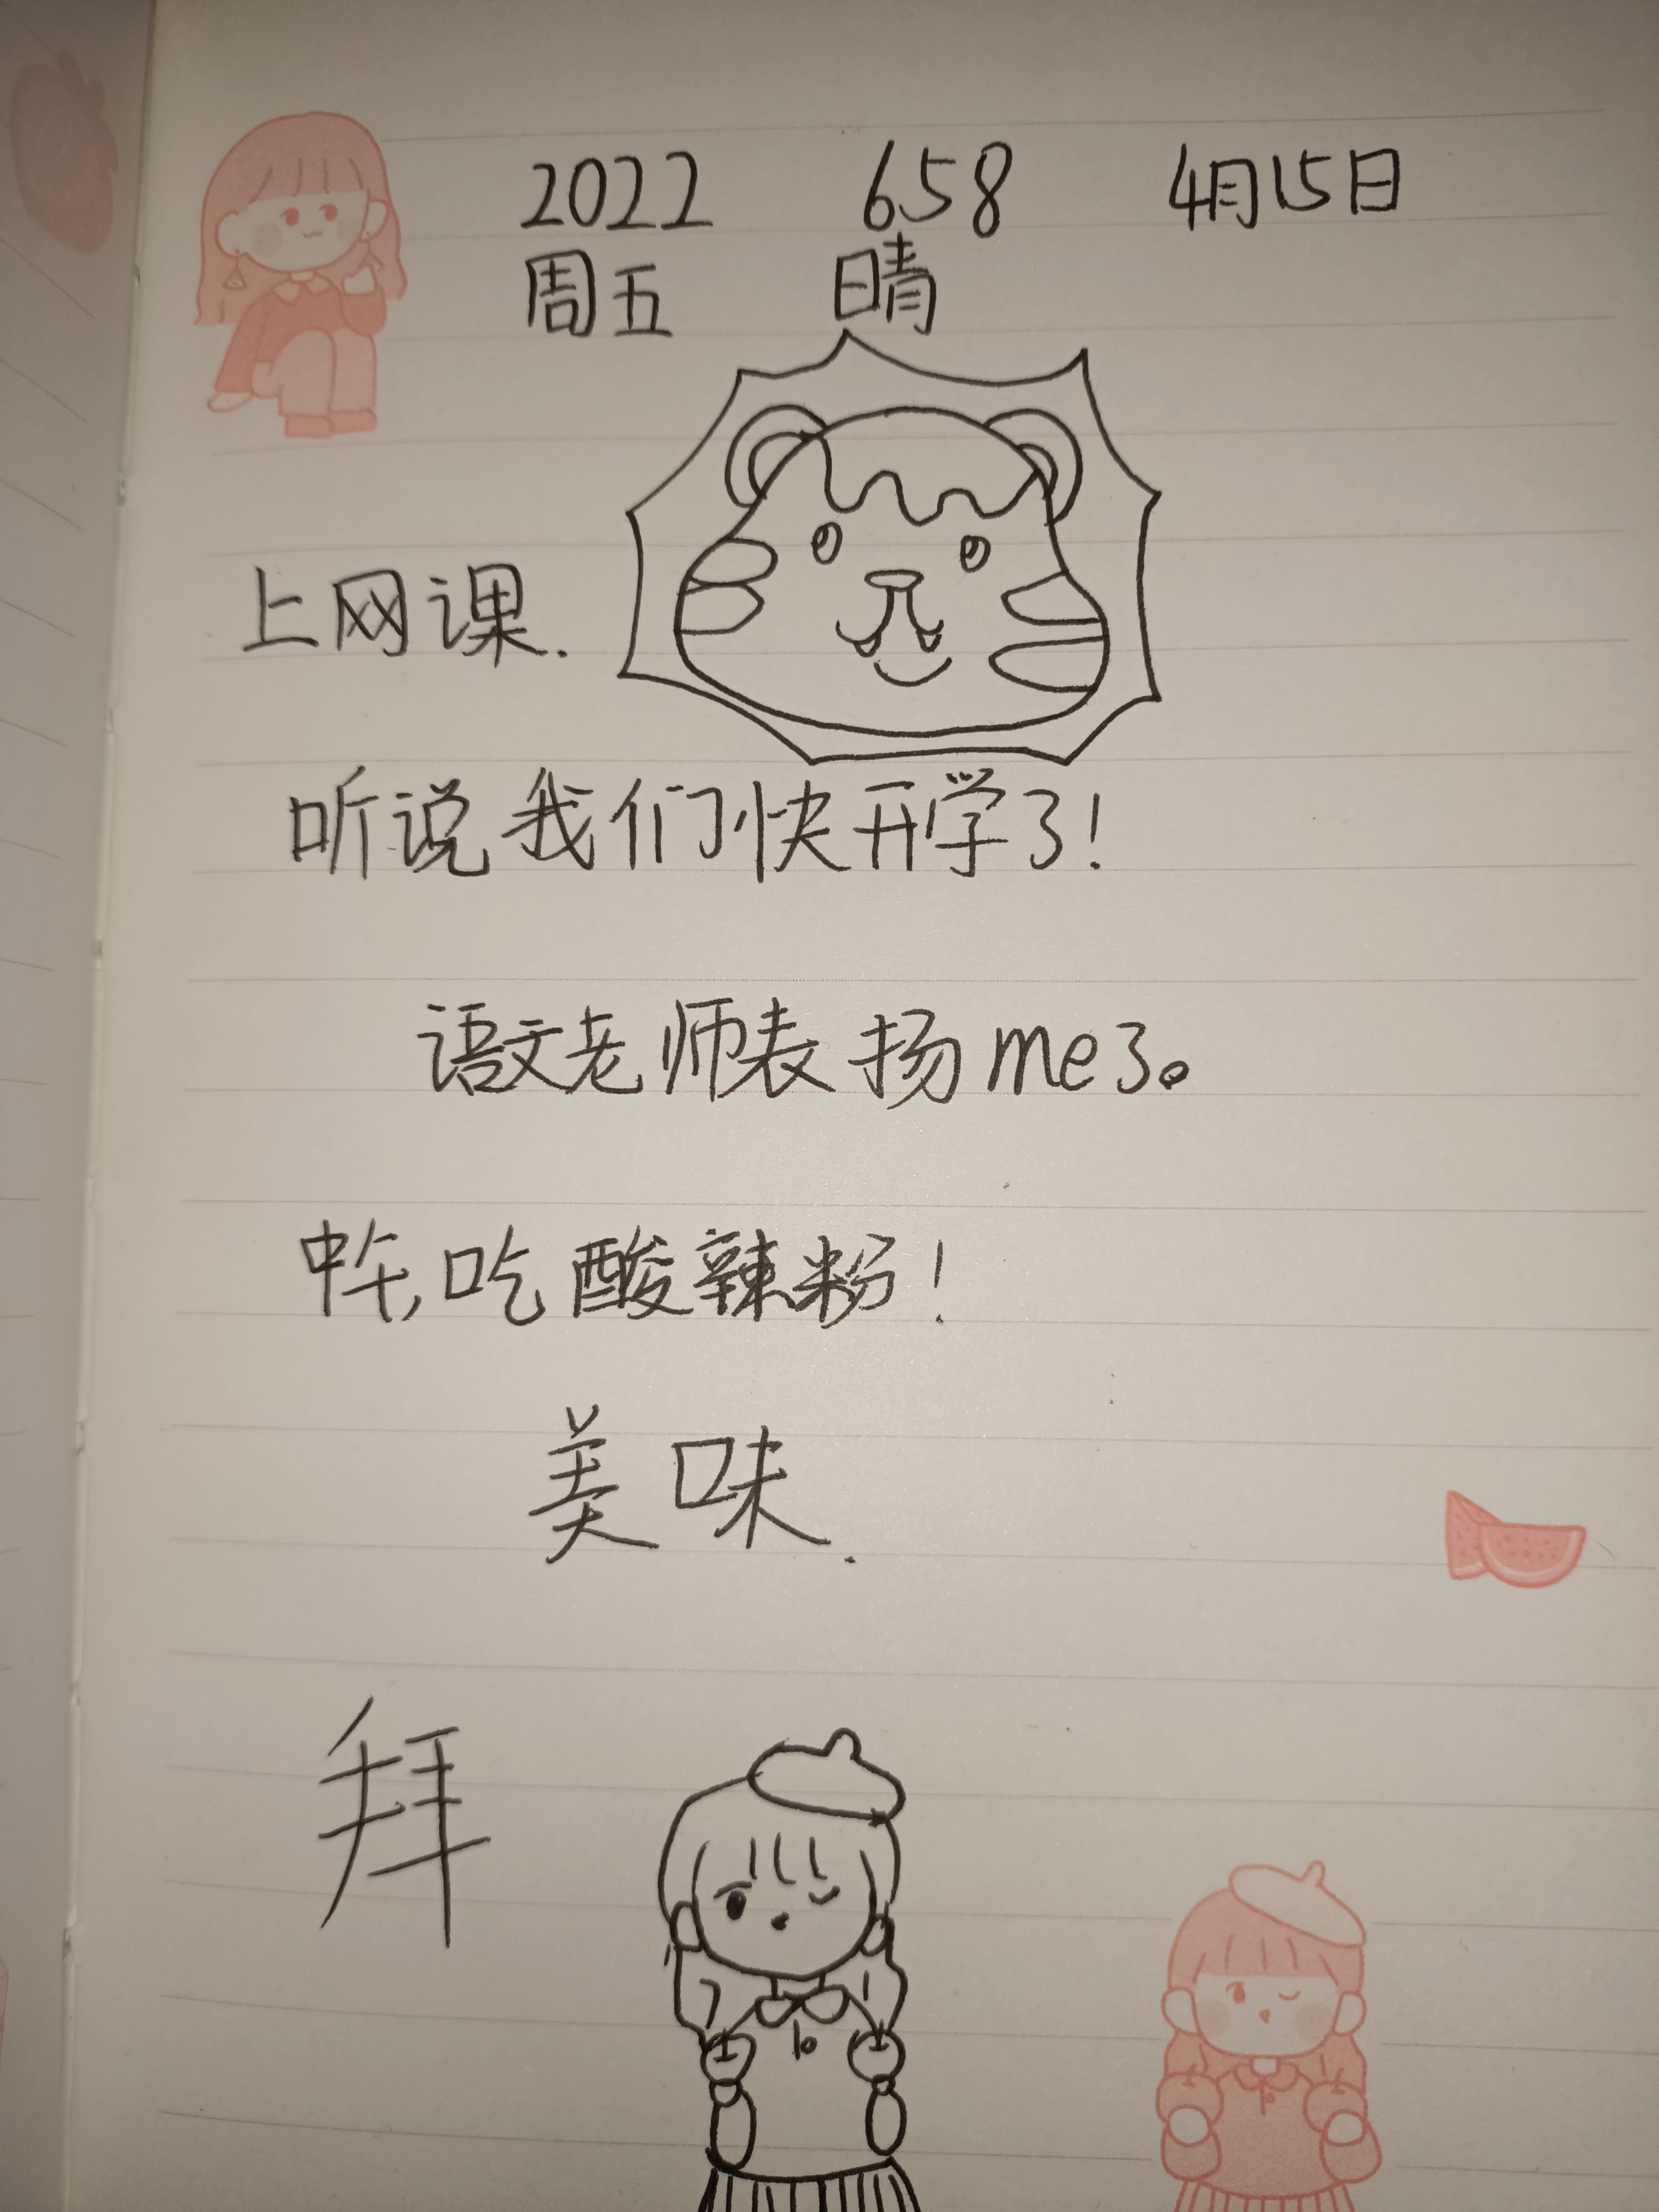 2022 658 4月15日
周五 晴
上网课.
听说我们快开学了!
语文老师表扬me了。
中午,吃酸辣粉!
美味.
拜